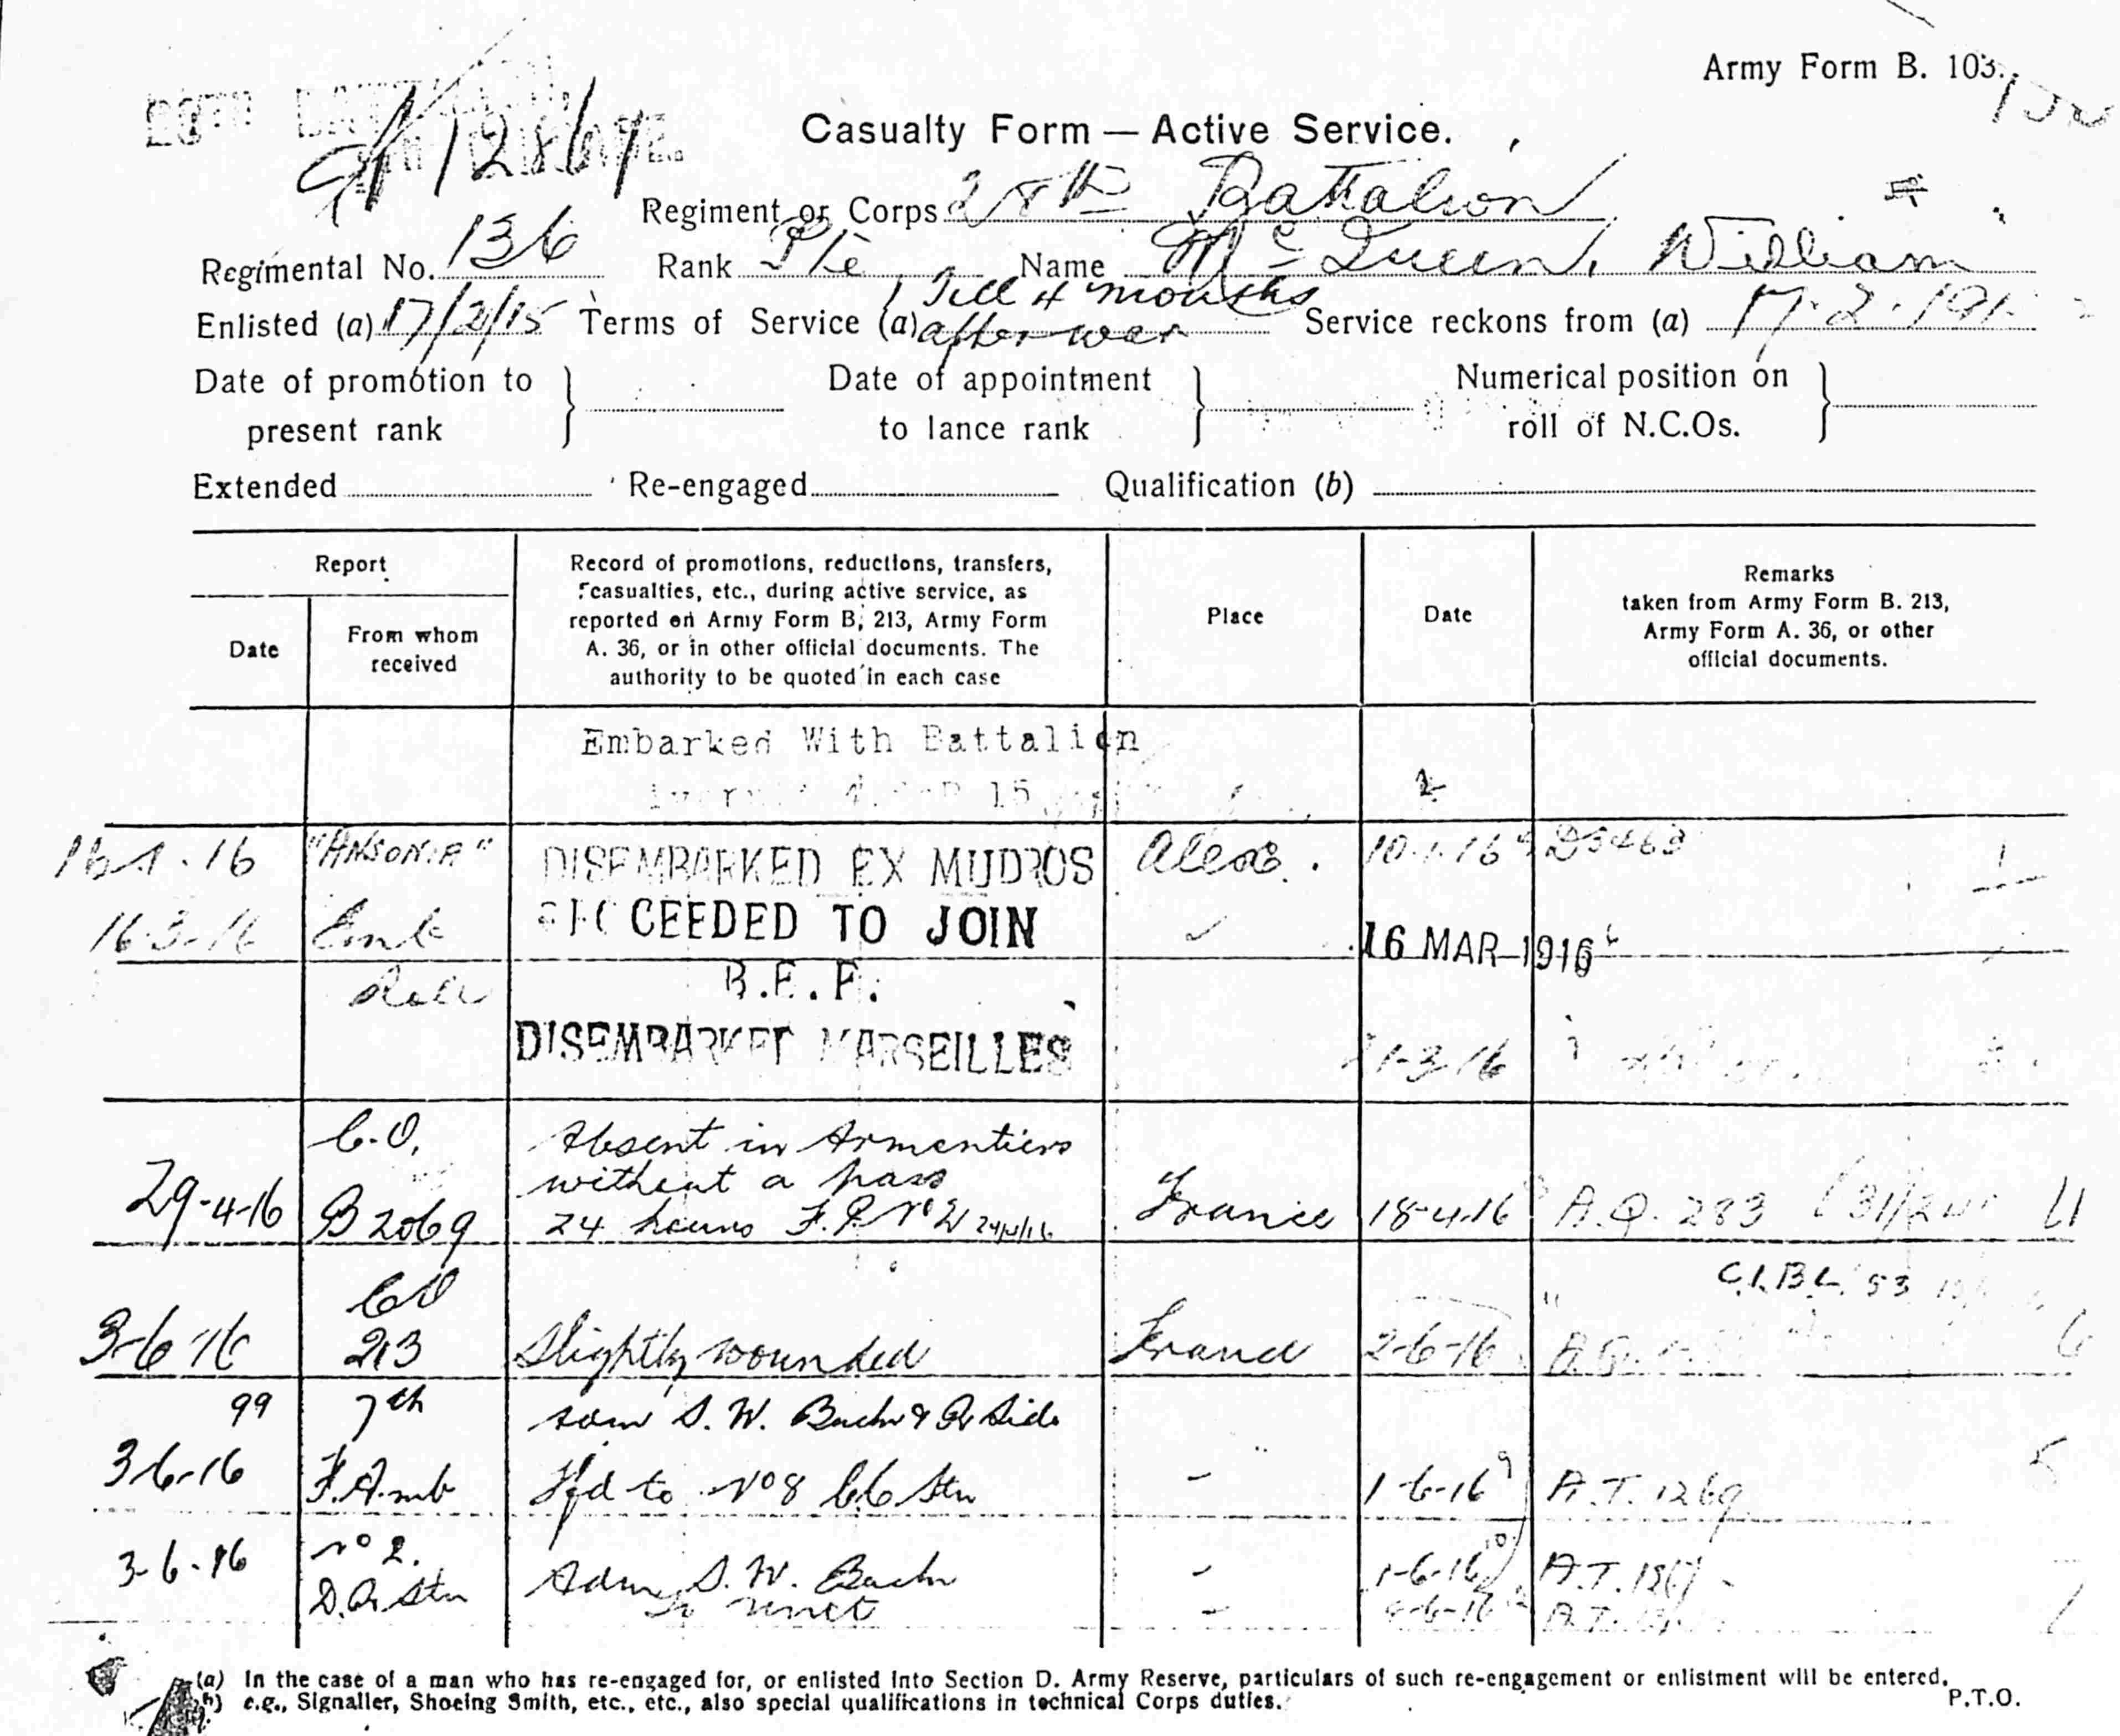 Army Form B. 103.
Casualty Form — Active Service.
Regiment or Corps 28th Battalion
Regimental No. 136 Rank Pte Name McQueen, William
Enlisted (a) 17/2/15 Terms of Service (a) Till 4 months after war Service reckons from (a) 17.2.191
Date of promotion to present rank
Date of appointment to lance rank
Numerical position on roll of N.C.Os.
Extended Re-engaged Qualification (b)
Report
Date
From whom received
Record of promotions, reductions, transfers,
casualties, etc., during active service, as
reported on Army Form B, 213, Army Form
A. 36, or in other official documents. The
authority to be quoted in each case
Place
Date
Remarks
taken from Army Form B. 213,
Army Form A. 36, or other
official documents.
Embarked With Battalion
15
"ANSONIA" DISEMBARKED EX MUDROS Alex. 10.1.16
16.3.16 Emb CEEDED TO JOIN 16 MAR 1916
Roll B.E.F.
DISEMBARKED MARSEILLES 1-3-16
C.O. Absent in Armentiers
without a pass
29-4-16 B2069 24 hours F.P. No 2 France 18-4-16 A.Q. 283
C.O
3-6-16 213 Slightly wounded France 2-6-16
99 7th S.W. & Side
3-6-16 F.Amb Tfd to No 8 C.C Stn 1-6-16 A.T. 1269
No 2.
3-6-16 D.R. Stn Adm S.W. 1-6-16 A.T.
To unit A.T.
(a) In the case of a man who has re-engaged for, or enlisted into Section D. Army Reserve, particulars of such re-engagement or enlistment will be entered.
(b) e.g., Signaller, Shoeing Smith, etc., etc., also special qualifications in technical Corps duties.
P.T.O.